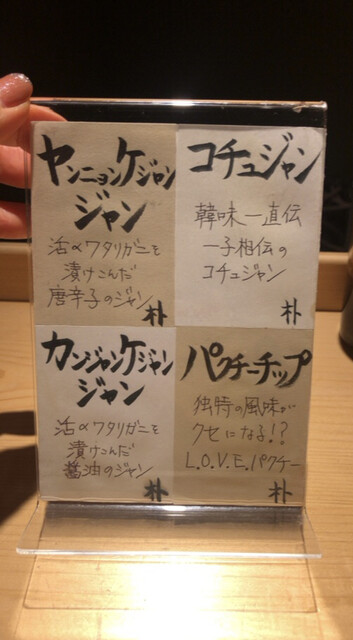 ヤンニョンケジャン
ジャン
活〆ワタリガニを
漬けこんだ
唐辛子のジャン
朴
コチュジャン
韓味一直伝
一子相伝の
コチュジャン
朴
カンジャンケジャン
ジャン
活〆ワタリガニを
漬けこんだ
醤油のジャン
朴
パクチーチップ
独特の風味が
クセになる!?
L.O.V.E.パクチー
朴